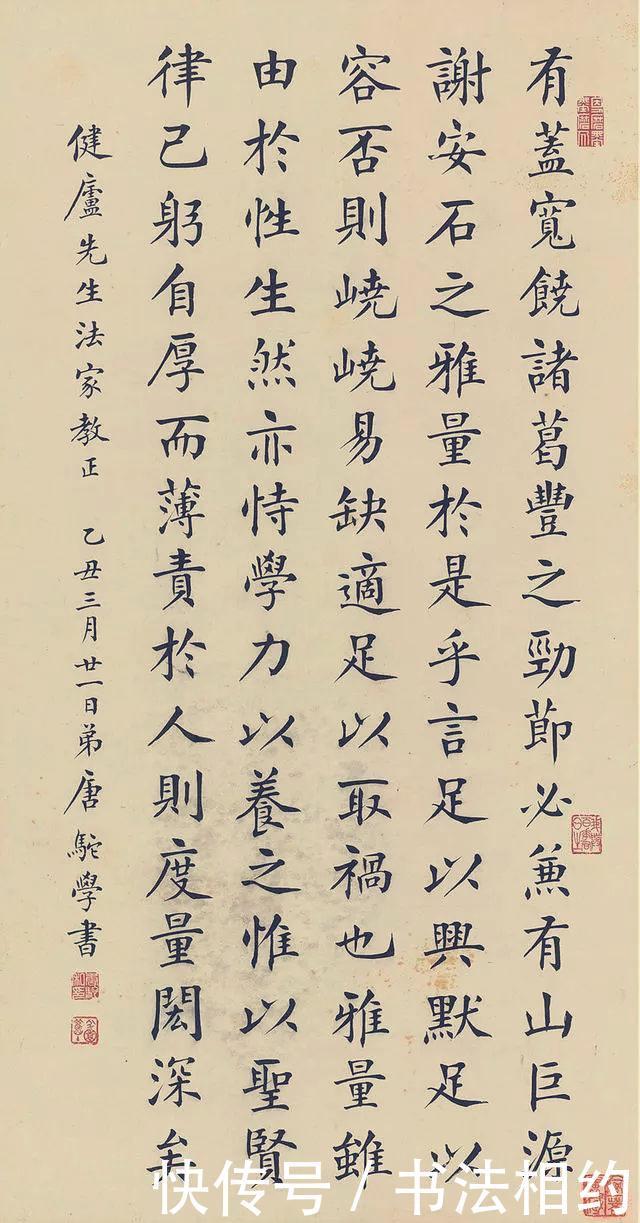 有蓋寬饒諸葛豐之勁節必兼有山巨源
謝安石之雅量於是乎言足以興默足以
容否則嶢嶢易缺適足以取禍也雅量雖
由於性生然亦恃學力以養之惟以聖賢
律己躬自厚而薄責於人則度量閎深矣
健廬先生法家教正 乙丑三月廿一日弟唐駝學書
快传号/书法相约